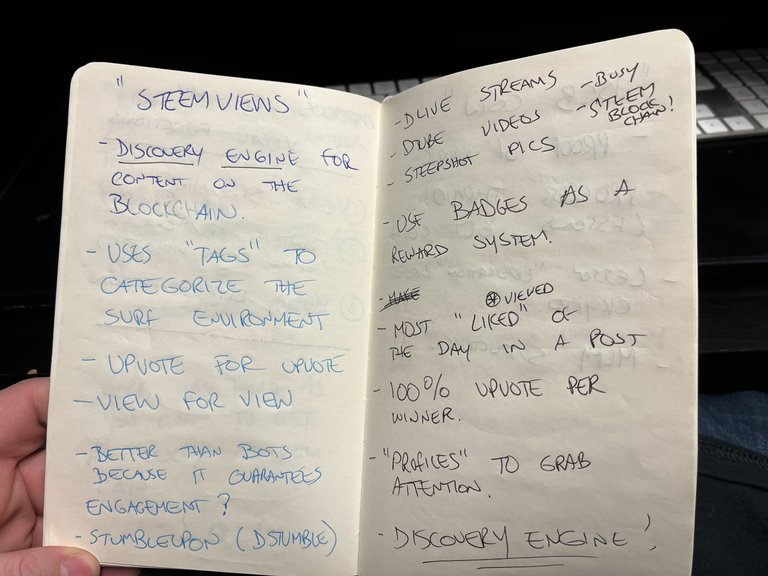 "STEEMVIEWS"
- DISCOVERY ENGINE FOR
CONTENT ON THE
BLOCKCHAIN.
- USES "TAGS" TO
CATEGORIZE THE
SURF ENVIRONMENT
- UPVOTE FOR UPVOTE
- VIEW FOR VIEW
- BETTER THAN BOTS
BECAUSE IT GUARANTEES
ENGAGEMENT?
- STUMBLEUPON (DSTUMBLE)
- DLIVE STREAMS
- DTUBE VIDEOS
- STEEPSHOT PICS
- BUSY
- STEEM
BLOCK
CHAIN!
- USE BADGES AS A
REWARD SYSTEM.
VIEWED
- MOST "LIKED" OF
THE DAY IN A POST
- 100% UPVOTE PER
WINNER.
- "PROFILES" TO GRAB
ATTENTION.
- DISCOVERY ENGINE!